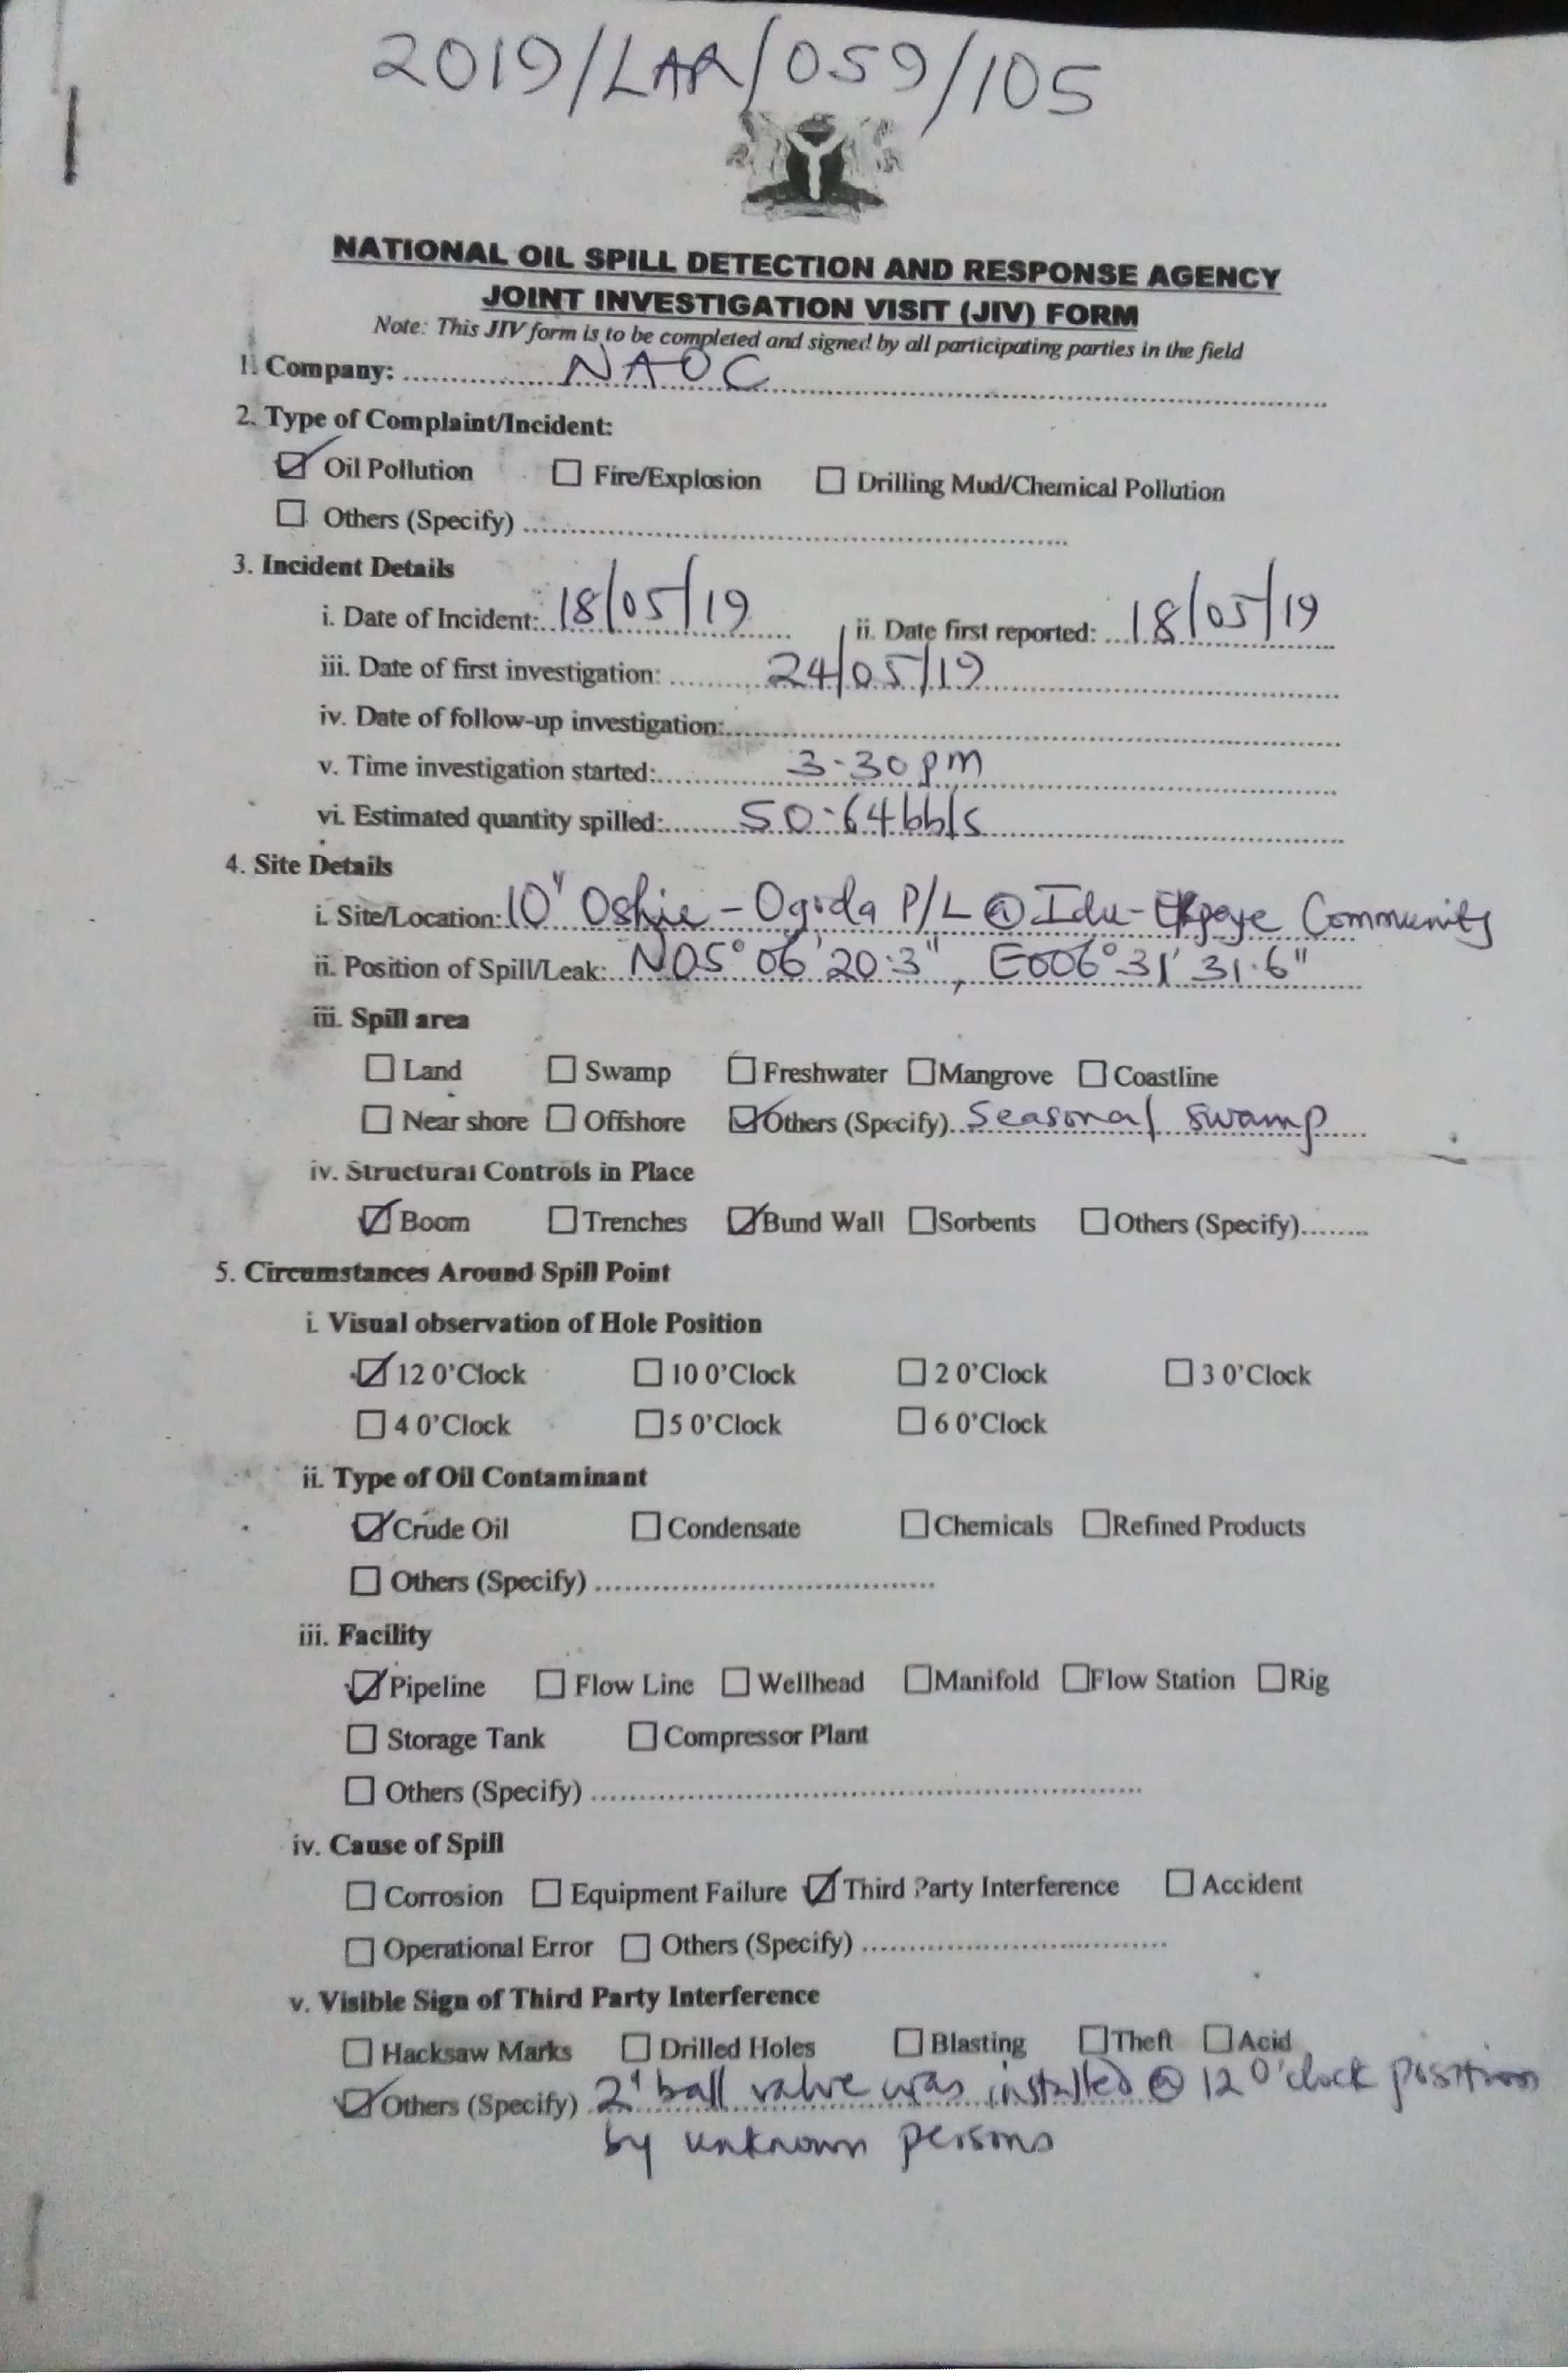 2019/LAR/059/105
NATIONAL OIL SPILL DETECTION AND RESPONSE AGENCY
JOINT INVESTIGATION VISIT (JIV) FORM
Note: This JIV form is to be completed and signed by all participating parties in the field
1. Company: NAOC
2. Type of Complaint/Incident:
☑ Oil Pollution ☐ Fire/Explosion ☐ Drilling Mud/Chemical Pollution
☐ Others (Specify)
3. Incident Details
i. Date of Incident: 18/05/19 ii. Date first reported: 18/05/19
iii. Date of first investigation: 24/05/19
iv. Date of follow-up investigation:
v. Time investigation started: 3.30pm
vi. Estimated quantity spilled: 50.64bbls
4. Site Details
i. Site/Location: 10" Oshie - Ogoda P/L @ Idu-Ekpeye Community
ii. Position of Spill/Leak: N05° 06' 20.3", E006° 31' 31.6"
iii. Spill area
☐ Land ☐ Swamp ☐ Freshwater ☐ Mangrove ☐ Coastline
☐ Near shore ☐ Offshore ☑ Others (Specify). Seasonal swamp
iv. Structural Controls in Place
☑ Boom ☐ Trenches ☑ Bund Wall ☐ Sorbents ☐ Others (Specify)
5. Circumstances Around Spill Point
i. Visual observation of Hole Position
☑ 12 0'Clock ☐ 10 0'Clock ☐ 2 0'Clock ☐ 3 0'Clock
☐ 4 0'Clock ☐ 5 0'Clock ☐ 6 0'Clock
ii. Type of Oil Contaminant
☑ Crude Oil ☐ Condensate ☐ Chemicals ☐ Refined Products
☐ Others (Specify)
iii. Facility
☑ Pipeline ☐ Flow Line ☐ Wellhead ☐ Manifold ☐ Flow Station ☐ Rig
☐ Storage Tank ☐ Compressor Plant
☐ Others (Specify)
iv. Cause of Spill
☐ Corrosion ☐ Equipment Failure ☑ Third Party Interference ☐ Accident
☐ Operational Error ☐ Others (Specify)
v. Visible Sign of Third Party Interference
☐ Hacksaw Marks ☐ Drilled Holes ☐ Blasting ☐ Theft ☐ Acid
☑ Others (Specify) 2" ball valve was installed @ 12 0'clock position
by unknown persons